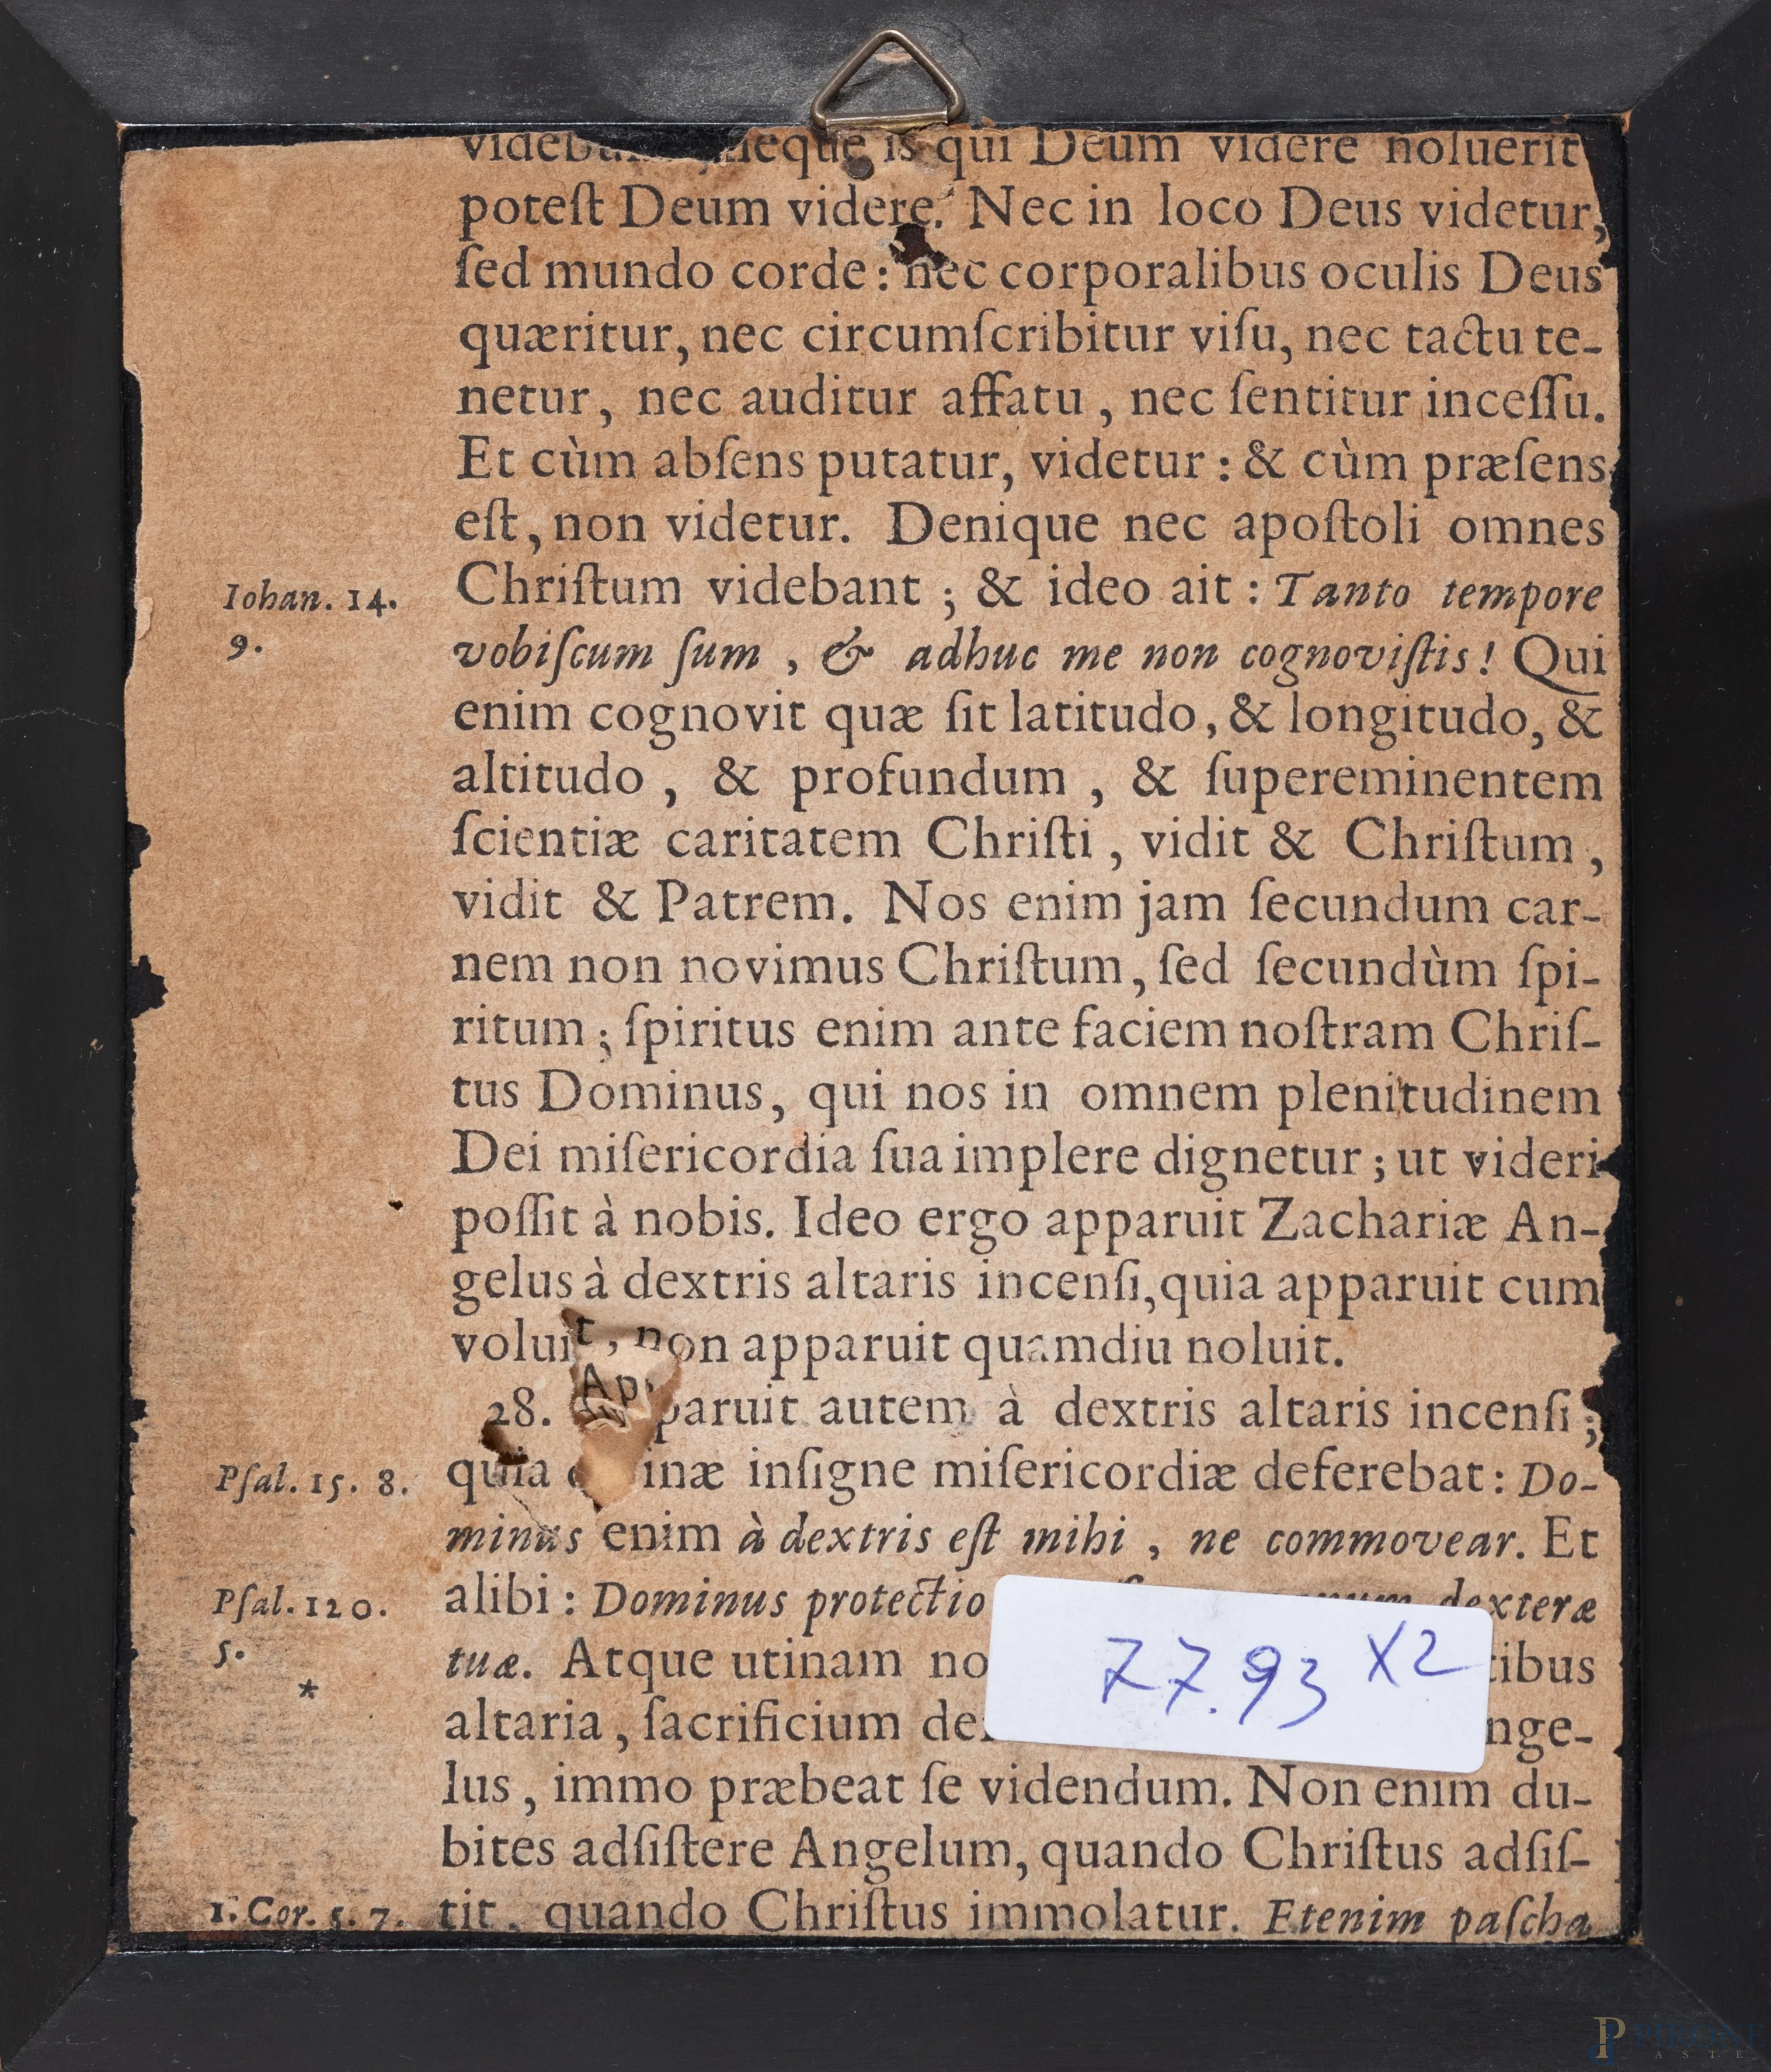 is qui Deum videre noluerit
poteſt Deum videre. Nec in loco Deus videtur,
ſed mundo corde: nec corporalibus oculis Deus
quæritur, nec circumſcribitur viſu, nec tactu te-
netur, nec auditur affatu, nec ſentitur inceſſu.
Et cùm abſens putatur, videtur: & cùm præſens
eſt, non videtur. Denique nec apoſtoli omnes
Iohan. 14. Chriſtum videbant; & ideo ait: Tanto tempore
9. vobiſcum ſum, & adhuc me non cognoviſtis! Qui
enim cognovit quæ ſit latitudo, & longitudo, &
altitudo, & profundum, & ſupereminentem
ſcientiæ caritatem Chriſti, vidit & Chriſtum,
vidit & Patrem. Nos enim jam ſecundum car-
nem non novimus Chriſtum, ſed ſecundùm ſpi-
ritum; ſpiritus enim ante faciem noſtram Chriſ-
tus Dominus, qui nos in omnem plenitudinem
Dei miſericordia ſua implere dignetur; ut videri
poſſit à nobis. Ideo ergo apparuit Zachariæ An-
gelus à dextris altaris incenſi, quia apparuit cum
voluit, non apparuit quamdiu noluit.
28. Apparuit autem à dextris altaris incenſi;
Pſal. 15. 8. quia inæ inſigne miſericordiæ deferebat: Do-
minus enim à dextris eſt mihi, ne commovear. Et
Pſal. 120. alibi: Dominus protectio dexteræ
5. tuæ. Atque utinam no tibus
*
altaria, ſacrificium nge-
lus, immo præbeat ſe videndum. Non enim du-
bites adſiſtere Angelum, quando Chriſtus adſiſ-
1. Cor. 5. 7. tit, quando Chriſtus immolatur. Etenim paſcha
77.93 x2
PIRONI
ASTE